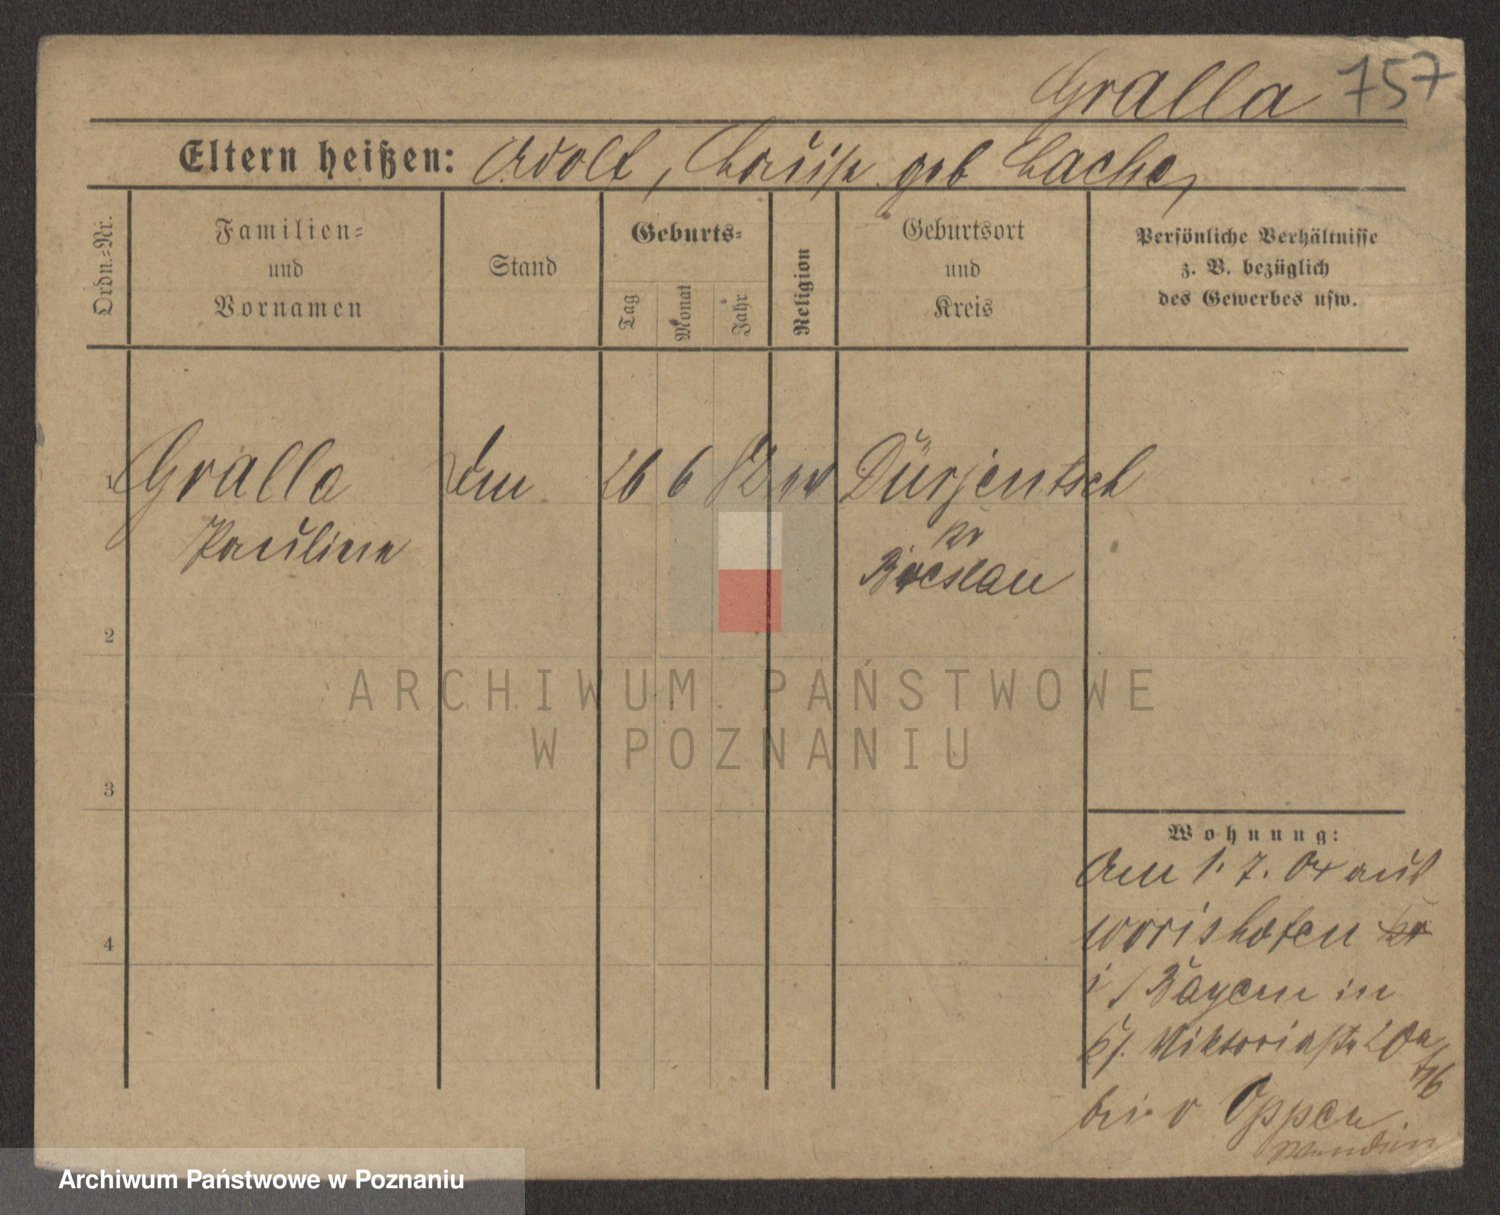 Gralla 757
Eltern heißen: Adolf, Louise geb Lache,
Ordn.-Nr.
Familien-
und
Vornamen
Stand
Geburts-
Tag
Monat
Jahr
Religion
Geburtsort
und
Kreis
Persönliche Verhältnisse
z. B. bezüglich
des Gewerbes usw.
1 Gralla 26 6 82 ev Dürjentsch
Pauline
Kr
Breslau
2
3
4
Wohnung:
Am 1. 7. 04 aus
Wörishofen Kr
i/Bayern in
Viktoriastr
bei v Oppen
ARCHIWUM PAŃSTWOWE
W POZNANIU
Archiwum Państwowe w Poznaniu